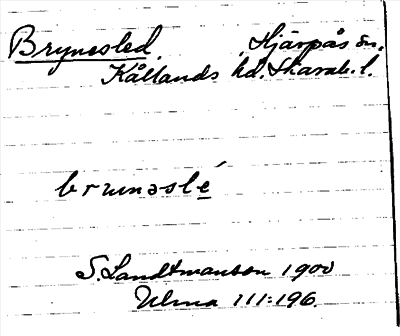 Brynesled. Hjärpås sn.
Kållands hd. Skarab. l.
brunəslé
S. Landtmanson 1900
Ulma 111:196.